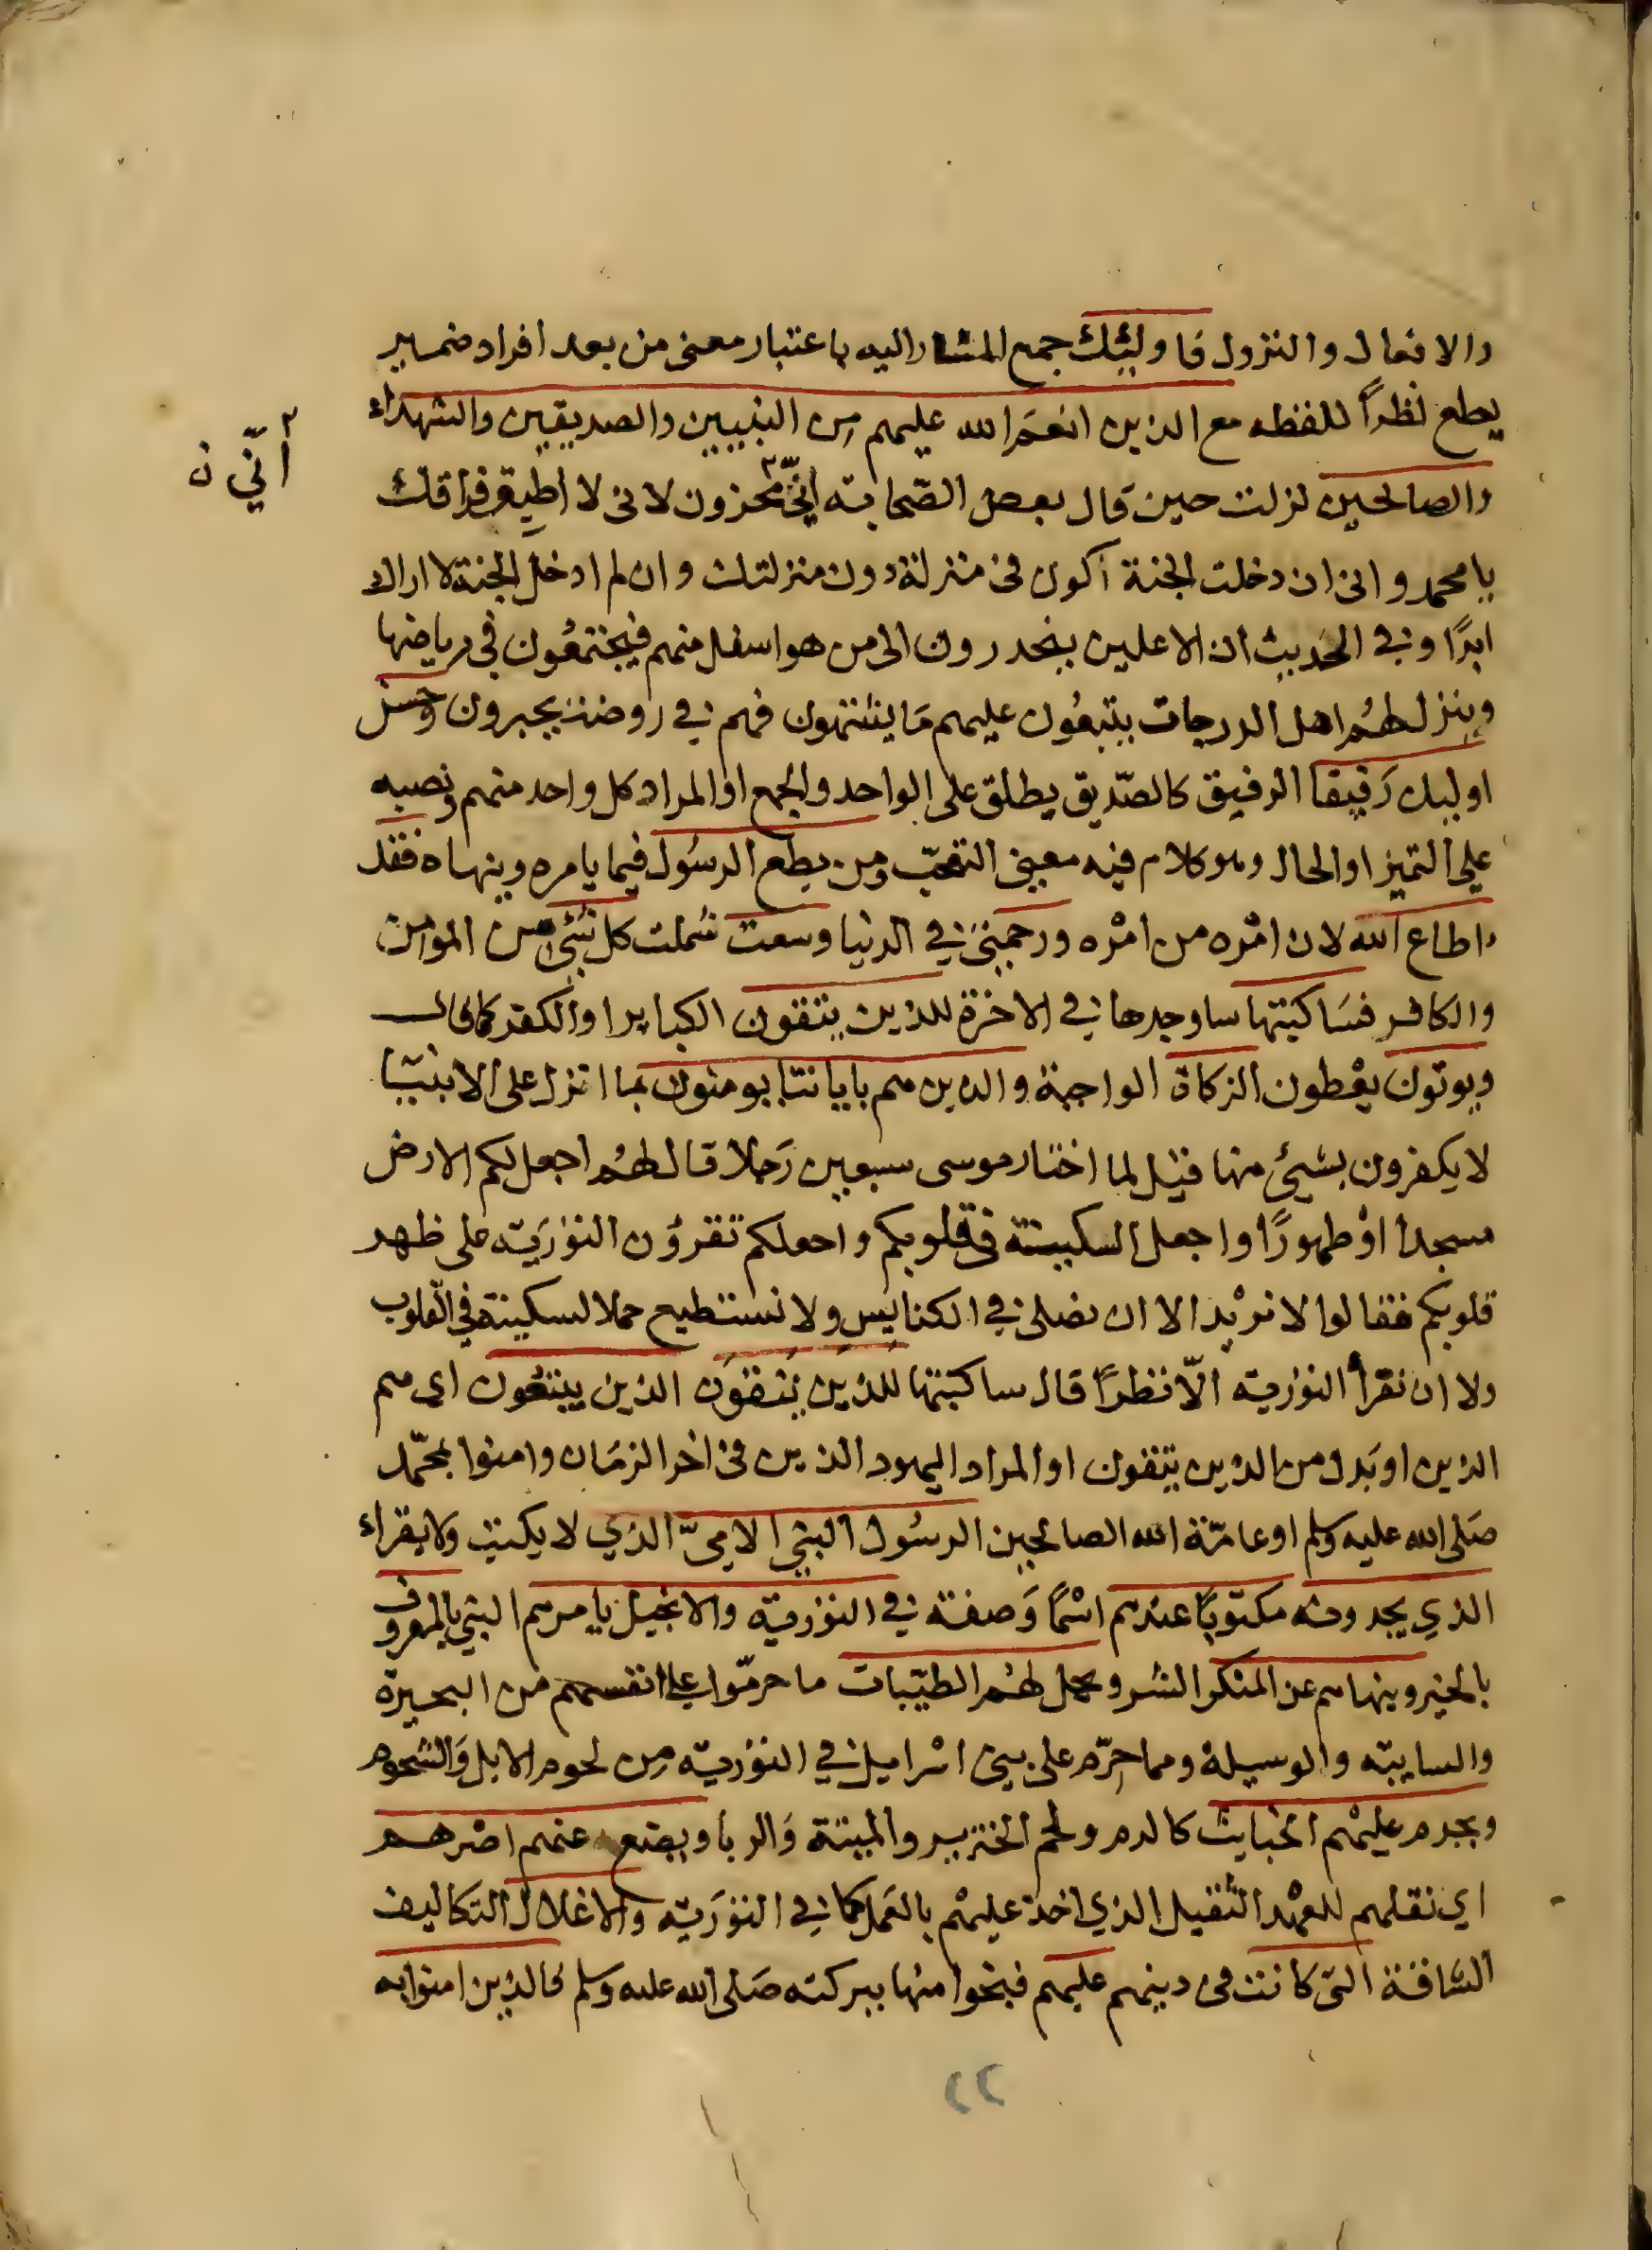 والافعال والنزول فاولئك جمع المشار اليه باعتبار معنى من بعد افراد ضمير
يطع نظراً للفظه مع الذين انعم الله عليهم من النبيين والصديقين والشهداء
والصالحين نزلت حين قال بعض الصّحابة انّي محزون لانى لا اطيق فراقك
أنّي ن
يا محمد وانى ان دخلت الجنة اكون فى منزلة دون منزلتك وان لم ادخل الجنة لا اراك
ابدًا وفي الحديث ان الاعلين ينحدرون الى من هو اسفل منهم فيجتمعُون فى رياضها
وينزل لهُم اهل الدرجات يتبعُون عليهم مَا يشتهون فهم في روضة يحبرون وحسن
اوليك رَفيقا الرفيق كالصّديق يطلق على الواحد والجمع او المراد كل واحد منهم ونصبه
على التميز او الحال وهو كلام فيه معنى التعجّب ومن يطع الرسُول فيما يامره وينهاه فقد
اطاع الله لان امْره من امْره ورحمتى في الدنيا وسعت شملت كل شئ من المؤمن
والكافر فسَاكتبها ساوجدها في الاخرة للذين يتقون الكباير او الكفر كما قال
ويوتون يعْطون الزكاة الواجبة والذين هم باياتنا يومنون بما انزل على الانبيا
لا يكفرون بشيئ منها قيل لما اختار موسى سبعين رَجلا قال لهُم اجعل لكم الارض
مسجدا اوْ طهورًا واجعل السكينة فى قلوبكم واجعلكم تقرؤن التوْرَية على ظهر
قلوبكم فقالوا لا نريْد الا ان نصلى في الكنايس ولا نستطيع حملا لسكينة في القلوب
ولا ان نقرأ التورية الّا نظرًا قال ساكتبها للذين يَتقونَ الذين يتبعُون اى هم
الذين او بَدل من الذين يتقون او المراد اليهود الذين فى اخر الزمَان وامنوا بمحمّد
صَلى الله عليه وسلم او عامّة الله الصالحين الرسُول النبي الامىّ الذي لا يكتب ولا يقراء
الذي يجدونه مكتوبًا عندهم اسْمًا وَصفة في التورية والانجيل يامرهم النبي بالمعروف
بالخير وينهاهم عن المنكر الشر ويحل لهُم الطيّبات ما حرمّوا على انفسهم من البحيرة
والسايبة والوسيلة ومما حرّم على بنى اسْراييل في التوْرية من لحوم الابل وَالشحوم
ويحرم عليهْم الخبايث كالدم ولحم الخنزير والميتة وَالربا ويضع عنهم اصْرهم
اي نقلهم للعهْد الثقيل الذي اخذ عليهْم بالعَمل كما في التوْرَية والاغلال التكاليف
الشاقة التى كانت فى دينهم عليهم فنجوا منها ببركته صَلى الله عليه وسلم فالذين امنوا به
٢٢